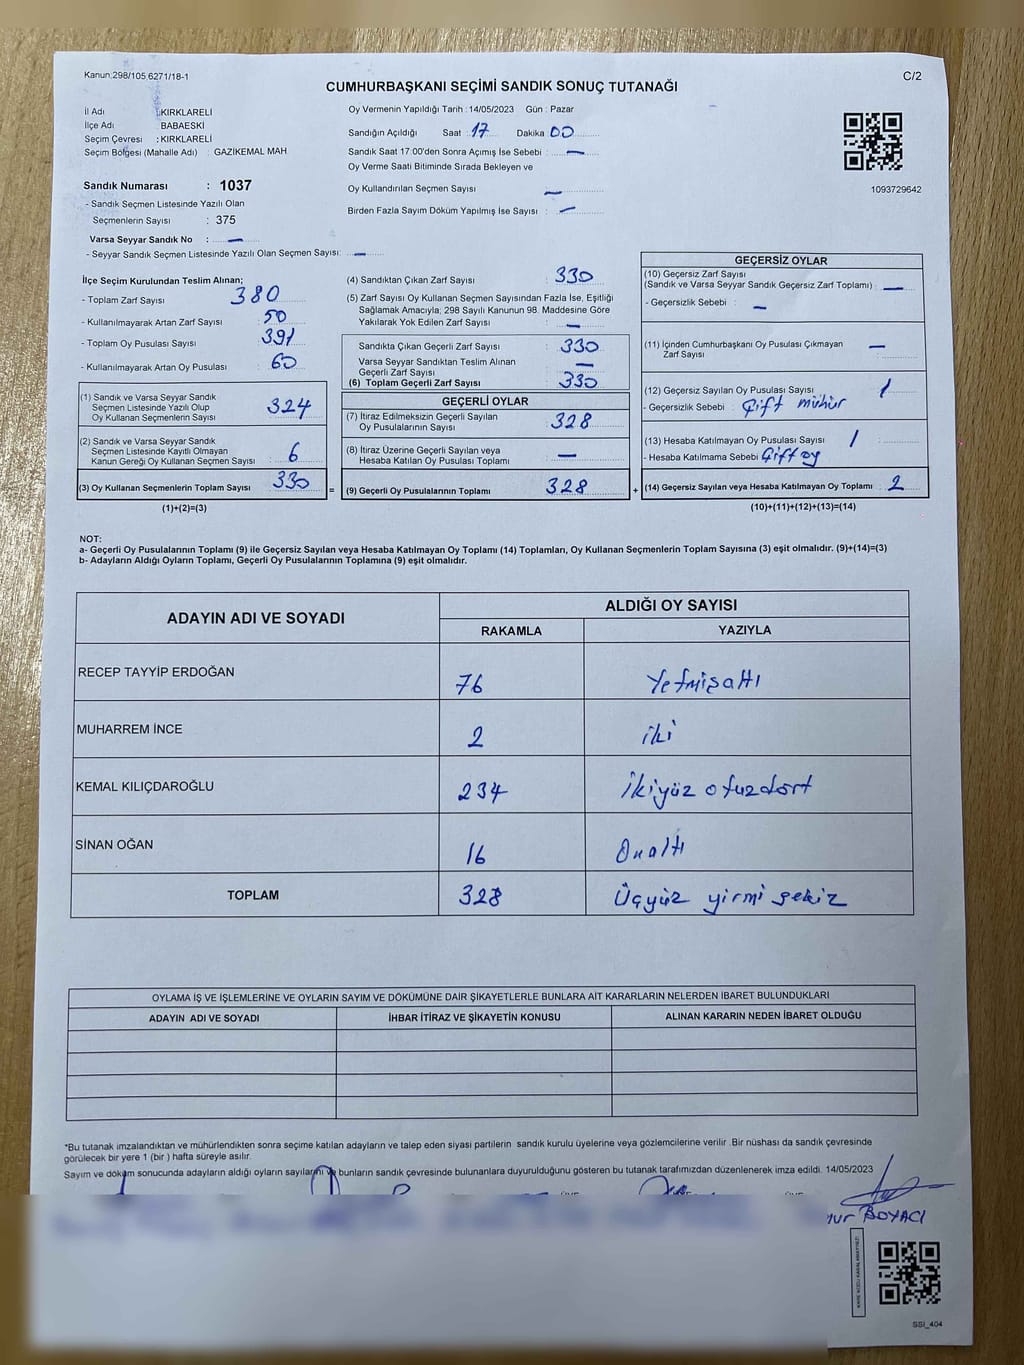 Kanun:298/105 6271/18-1
C/2
CUMHURBAŞKANI SEÇİMİ SANDIK SONUÇ TUTANAĞI
İl Adı : KIRKLARELİ
İlçe Adı : BABAESKİ
Seçim Çevresi : KIRKLARELİ
Seçim Bölgesi (Mahalle Adı) : GAZİKEMAL MAH.
Sandık Numarası : 1037
- Sandık Seçmen Listesinde Yazılı Olan
Seçmenlerin Sayısı : 375
Varsa Seyyar Sandık No : —
- Seyyar Sandık Seçmen Listesinde Yazılı Olan Seçmen Sayısı: —
Oy Vermenin Yapıldığı Tarih : 14/05/2023 Gün : Pazar
Sandığın Açıldığı Saat 17 Dakika 00
Sandık Saat 17:00'den Sonra Açımış İse Sebebi : —
Oy Verme Saati Bitiminde Sırada Bekleyen ve
Oy Kullandırılan Seçmen Sayısı —
Birden Fazla Sayım Döküm Yapılmış İse Sayısı : —
1093729642
İlçe Seçim Kurulundan Teslim Alınan;
- Toplam Zarf Sayısı 380
- Kullanılmayarak Artan Zarf Sayısı 50
- Toplam Oy Pusulası Sayısı 391
- Kullanılmayarak Artan Oy Pusulası 60
(1) Sandık ve Varsa Seyyar Sandık
Seçmen Listesinde Yazılı Olup
Oy Kullanan Seçmenlerin Sayısı 324
(2) Sandık ve Varsa Seyyar Sandık
Seçmen Listesinde Kayıtlı Olmayan
Kanun Gereği Oy Kullanan Seçmen Sayısı 6
(3) Oy Kullanan Seçmenlerin Toplam Sayısı 330
(1)+(2)=(3)
(4) Sandıktan Çıkan Zarf Sayısı : 330
(5) Zarf Sayısı Oy Kullanan Seçmen Sayısından Fazla İse, Eşitliği
Sağlamak Amacıyla; 298 Sayılı Kanunun 98. Maddesine Göre
Yakılarak Yok Edilen Zarf Sayısı : —
Sandıkta Çıkan Geçerli Zarf Sayısı : 330
Varsa Seyyar Sandıktan Teslim Alınan
Geçerli Zarf Sayısı : —
(6) Toplam Geçerli Zarf Sayısı : 330
GEÇERLİ OYLAR
(7) İtiraz Edilmeksizin Geçerli Sayılan
Oy Pusulalarının Sayısı 328
(8) İtiraz Üzerine Geçerli Sayılan veya
Hesaba Katılan Oy Pusulası Toplamı —
= (9) Geçerli Oy Pusulalarının Toplamı 328 +
GEÇERSİZ OYLAR
(10) Geçersiz Zarf Sayısı
(Sandık ve Varsa Seyyar Sandık Geçersiz Zarf Toplamı) : —
- Geçersizlik Sebebi : —
(11) İçinden Cumhurbaşkanı Oy Pusulası Çıkmayan —
Zarf Sayısı :
(12) Geçersiz Sayılan Oy Pusulası Sayısı 1
- Geçersizlik Sebebi : Çift mühür
(13) Hesaba Katılmayan Oy Pusulası Sayısı 1
- Hesaba Katılmama Sebebi Çift oy
(14) Geçersiz Sayılan veya Hesaba Katılmayan Oy Toplamı : 2
(10)+(11)+(12)+(13)=(14)
NOT:
a- Geçerli Oy Pusulalarının Toplamı (9) ile Geçersiz Sayılan veya Hesaba Katılmayan Oy Toplamı (14) Toplamları, Oy Kullanan Seçmenlerin Toplam Sayısına (3) eşit olmalıdır. (9)+(14)=(3)
b- Adayların Aldığı Oyların Toplamı, Geçerli Oy Pusulalarının Toplamına (9) eşit olmalıdır.
ADAYIN ADI VE SOYADI ALDIĞI OY SAYISI
RAKAMLA YAZIYLA
RECEP TAYYİP ERDOĞAN 76 Yetmişaltı
MUHARREM İNCE 2 iki
KEMAL KILIÇDAROĞLU 234 İkiyüz otuzdört
SİNAN OĞAN 16 Onaltı
TOPLAM 328 Üçyüz yirmi sekiz
OYLAMA İŞ VE İŞLEMLERİNE VE OYLARIN SAYIM VE DÖKÜMÜNE DAİR ŞİKAYETLERLE BUNLARA AİT KARARLARIN NELERDEN İBARET BULUNDUKLARI
ADAYIN ADI VE SOYADI İHBAR İTİRAZ VE ŞİKAYETİN KONUSU ALINAN KARARIN NEDEN İBARET OLDUĞU
*Bu tutanak imzalandıktan ve mühürlendikten sonra seçime katılan adayların ve talep eden siyasi partilerin sandık kurulu üyelerine veya gözlemcilerine verilir .Bir nüshası da sandık çevresinde
görülecek bir yere 1 (bir ) hafta süreyle asılır.
Sayım ve döküm sonucunda adayların aldığı oyların sayılarını ve bunların sandık çevresinde bulunanlara duyurulduğunu gösteren bu tutanak tarafımızdan düzenlenerek imza edildi. 14/05/2023
BOYACI
SSI_404